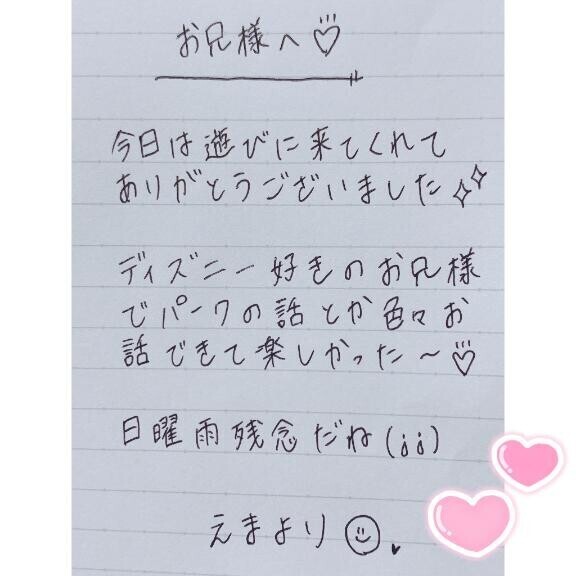 お兄様へ♡
今日は遊びに来てくれて
ありがとうございました✧✧
ディズニー好きのお兄様
でパークの話とか色々お
話できて楽しかった〜♡
日曜雨残念だね(;;)
えまより☺